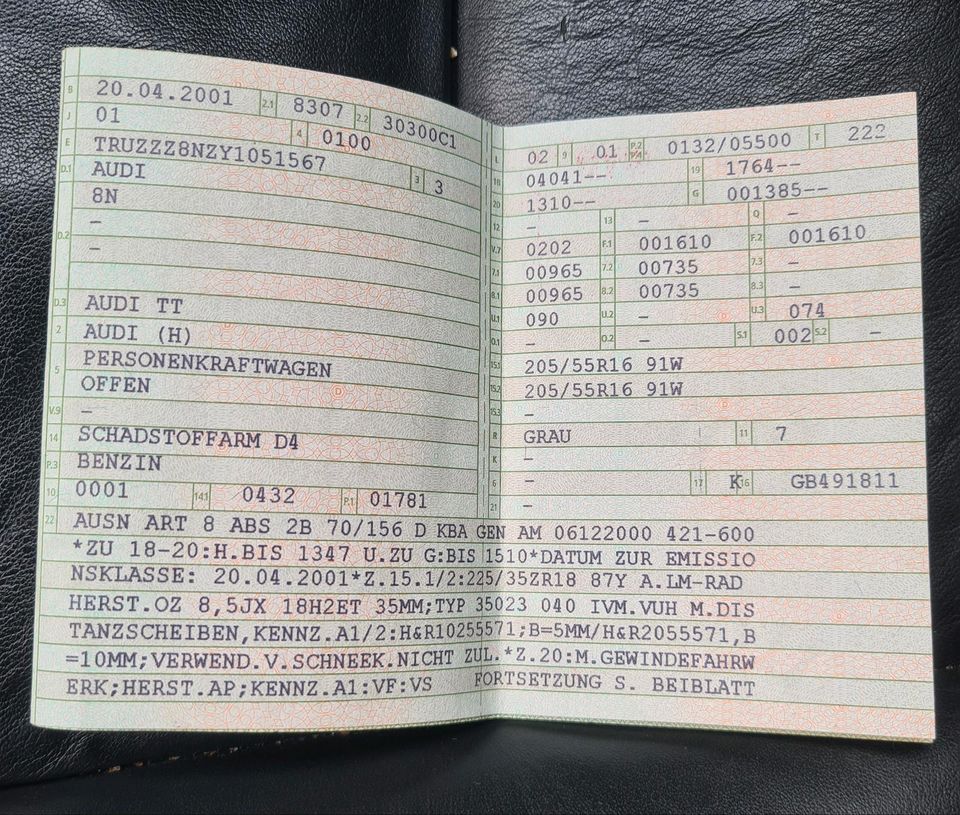 B 20.04.2001 2.1 8307 2.2 30300C1
J 01 4 0100
E TRUZZZ8NZY1051567 3 3
D.1 AUDI
8N
D.2 –
–
D.3 AUDI TT
2 AUDI (H)
5 PERSONENKRAFTWAGEN
OFFEN
V.9 –
14 SCHADSTOFFARM D4
P.3 BENZIN
10 0001 14.1 0432 P.1 01781
L 02 9 .01 P.2 P.4 0132/05500 T 222
18 04041-- 19 1764--
20 1310-- G 001385--
12 – 13 – Q –
V.7 0202 F.1 001610 F.2 001610
7.1 00965 7.2 00735 7.3 –
8.1 00965 8.2 00735 8.3 –
U.1 090 U.2 – U.3 074
O.1 – O.2 – S.1 002 S.2 –
15.1 205/55R16 91W
15.2 205/55R16 91W
15.3 –
R GRAU 11 7
K –
6 – 17 K 16 GB491811
21 –
22 AUSN ART 8 ABS 2B 70/156 D KBA GEN AM 06122000 421-600
*ZU 18-20:H.BIS 1347 U.ZU G:BIS 1510*DATUM ZUR EMISSIO
NSKLASSE: 20.04.2001*Z.15.1/2:225/35ZR18 87Y A.LM-RAD
HERST.OZ 8,5JX 18H2ET 35MM;TYP 35023 040 IVM.VUH M.DIS
TANZSCHEIBEN,KENNZ.A1/2:H&R10255571;B=5MM/H&R2055571,B
=10MM;VERWEND.V.SCHNEEK.NICHT ZUL.*Z.20:M.GEWINDEFAHRW
ERK;HERST.AP;KENNZ.A1:VF:VS FORTSETZUNG S. BEIBLATT